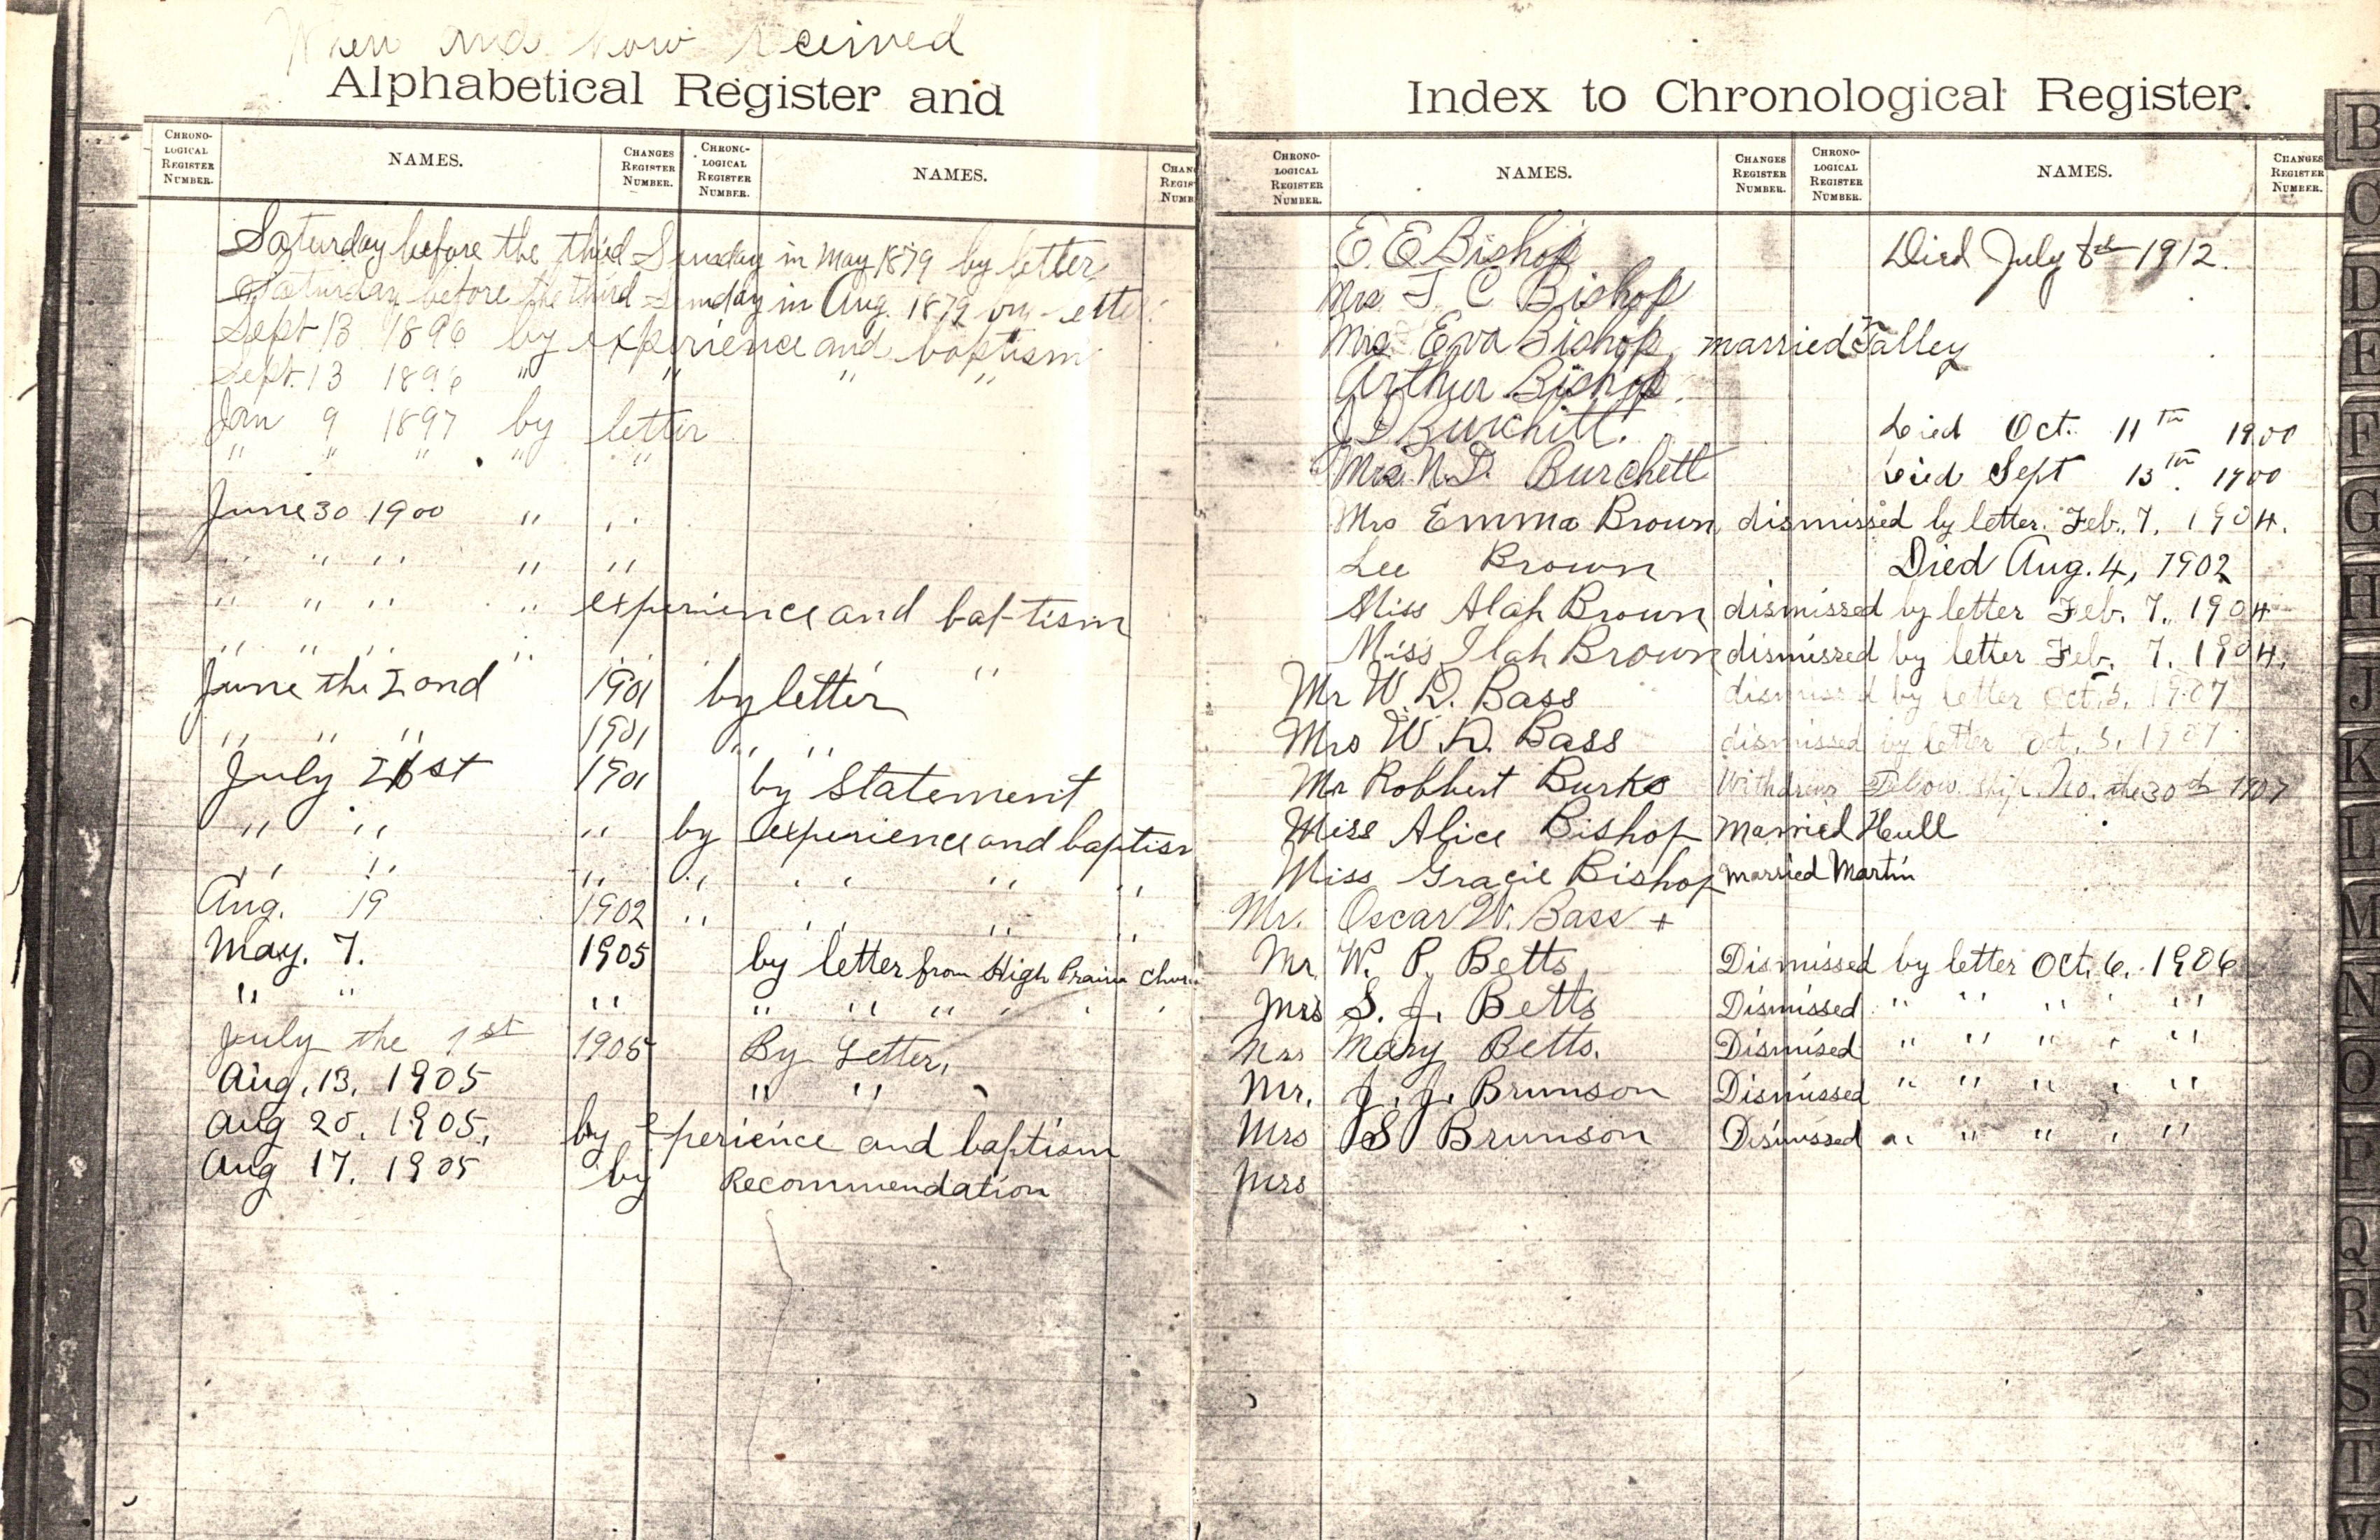 When and how received
Alphabetical Register and
CHRONO-LOGICAL REGISTER NUMBER.
NAMES.
CHANGES REGISTER NUMBER.
CHRONO-LOGICAL REGISTER NUMBER.
NAMES.
Saturday before the third Sunday in May 1879 by letter
Saturday before the third Sunday in Aug. 1879
Sept 13 1896 by experience and baptism
Sept. 13 1896 " " " "
Jan 9 1897 by letter
" " " " "
June 30 1900 " "
" " " " "
" " " " experience and baptism
" " " " "
June the 2ond 1901 by letter
" " " 1901 " "
July 21st 1901 by Statement
" " " by experience and baptism
" " " " " " " "
Aug. 19 1902 " " " " "
May. 7. 1905 by letter from High Prairie
" " " " " " " "
July the 1st 1905 By Letter,
Aug, 13, 1905 " "
Aug 20, 1905, by experience and baptism
Aug 17, 1905 by Recommendation
Index to Chronological Register.
CHRONO-LOGICAL REGISTER NUMBER.
NAMES.
CHANGES REGISTER NUMBER.
CHRONO-LOGICAL REGISTER NUMBER.
NAMES.
CHANGES REGISTER NUMBER.
E. E Bishop Died July 1912.
Mrs C Bishop
Eva Bishop, married Talley
Arthur Bishop.
Burchitt. Died Oct. 11th 1900
Mrs. N.D. Burchett Died Sept 13th 1900
Mrs Emma Brown, dismissed by letter. Feb. 7. 1904.
Lee Brown Died Aug. 4, 1902
Miss Alah Brown dismissed by letter Feb. 7. 1904
Miss Ilah Brown dismissed by letter Feb. 7. 1904.
Mr W. D. Bass dismissed by letter Oct. 5. 1907
Mrs W. D. Bass dismissed by letter Oct. 5. 1907
Mr Robbert Burks Withdrew the 30th 1907
Miss Alice Bishop Married Hull
Miss Gracie Bishop married Martin
Mr. Oscar W. Bass +
Mr W. P. Betts Dismissed by letter Oct. 6. 1906
Mrs S. J. Betts Dismissed " " " " "
Mrs Mary Betts. Dismised " " " " "
Mr. J. J. Brunson Dismissed " " " " "
Mrs S Brunson Dismissed " " " " "
Mrs
B
C
D
E
F
G
H
J
K
L
M
N
O
P
Q
R
S
T